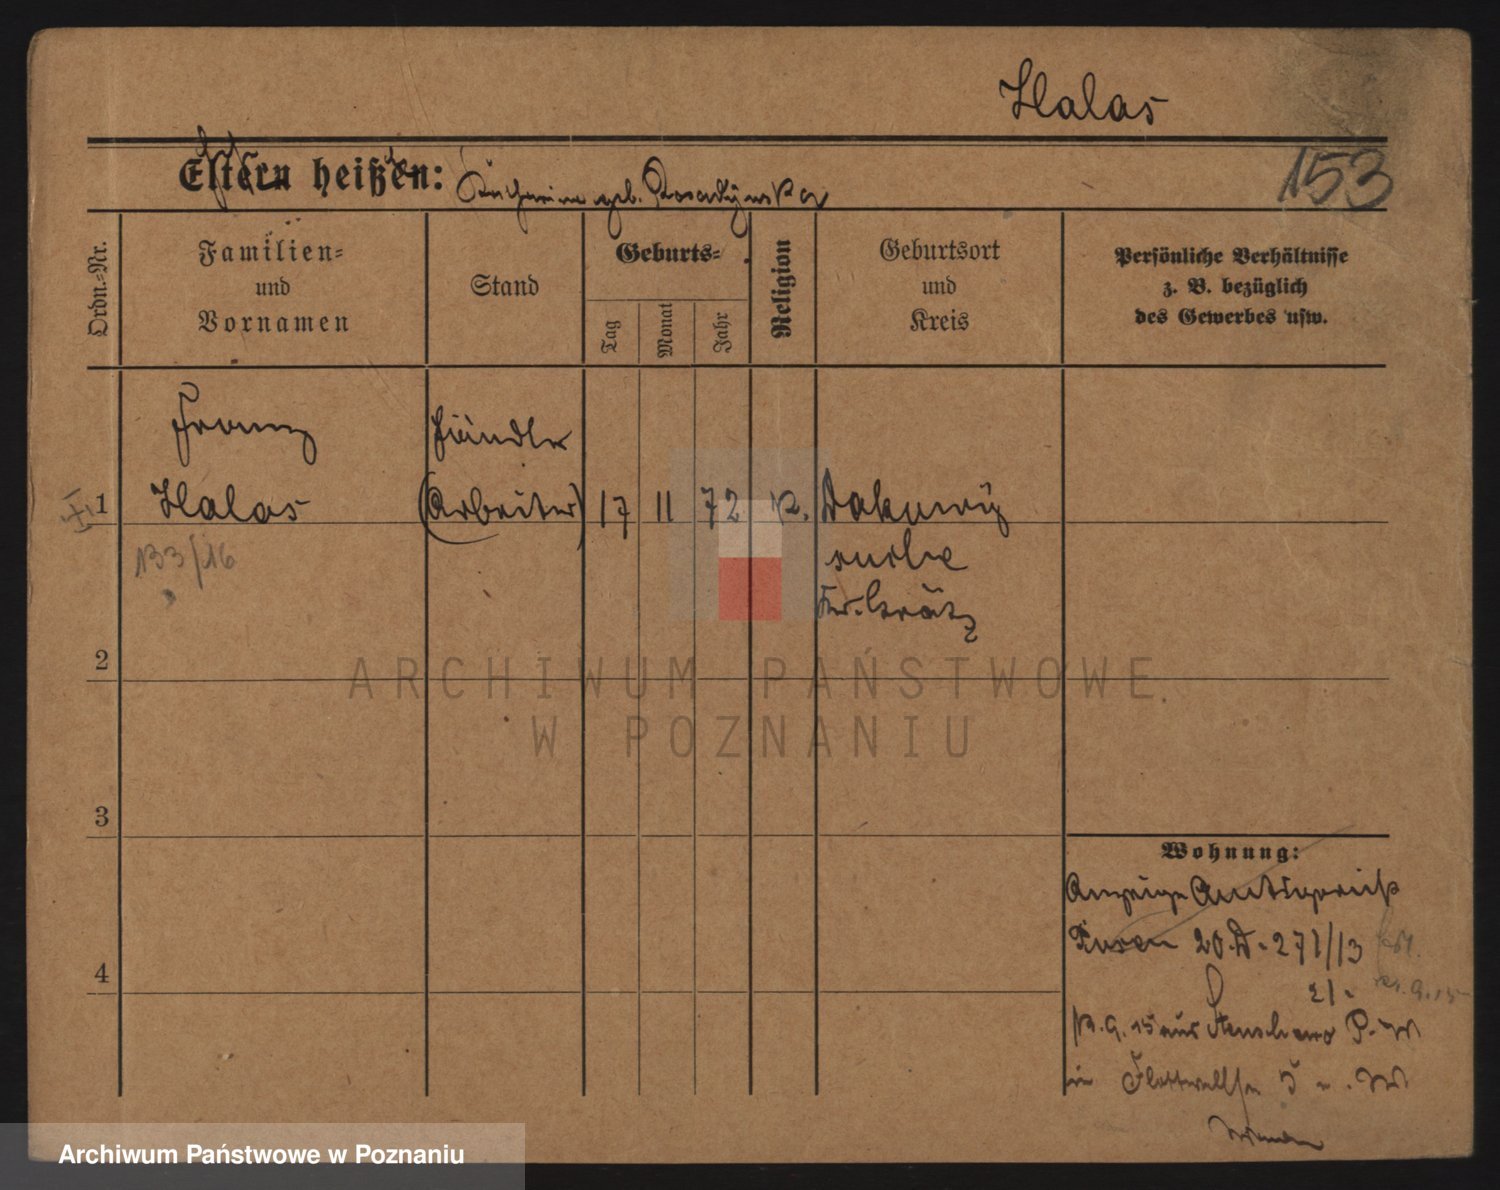 Halas
153
Eltern heißen:
geb.
Ordn.-Nr.
Familien-
und
Vornamen
Stand
Geburts-
Tag
Monat
Jahr
Religion
Geburtsort
und
Kreis
Persönliche Verhältnisse
z. B. bezüglich
des Gewerbes usw.
Franz
Händler
1
Halas
(Arbeiter)
17
11
72
K.
Dakowy
133/16
suche
Kr. Grätz
2
ARCHIWUM PAŃSTWOWE
W POZNANIU
3
Wohnung:
Anzeige Amtsgericht
Posen 20. D. 271/13
4
21.
9. 15 aus P. W
in Flottwellstr.
Wenden
Archiwum Państwowe w Poznaniu